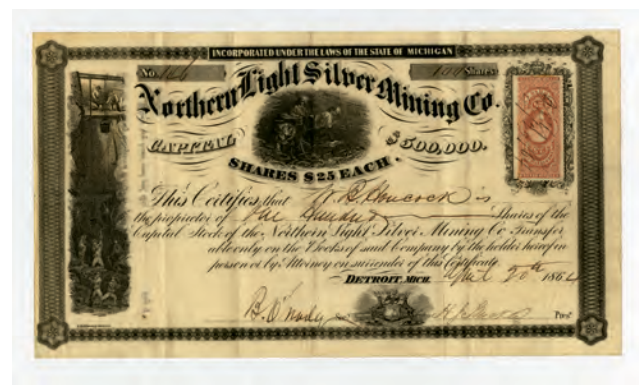 INCORPORATED UNDER THE LAWS OF THE STATE OF MICHIGAN
No. 166 100 Shares
Northern Light Silver Mining Co.
CAPITAL $500,000.
SHARES $25 EACH.
This Certifies that W. B. Hancock is
the proprietor of One Hundred Shares of the
Capital Stock of the Northern Light Silver Mining Co Transfer
able only on the Books of said Company by the holder hereof in
person or by Attorney on surrender of this Certificate.
DETROIT MICH. April 20th 1864
Pres.t